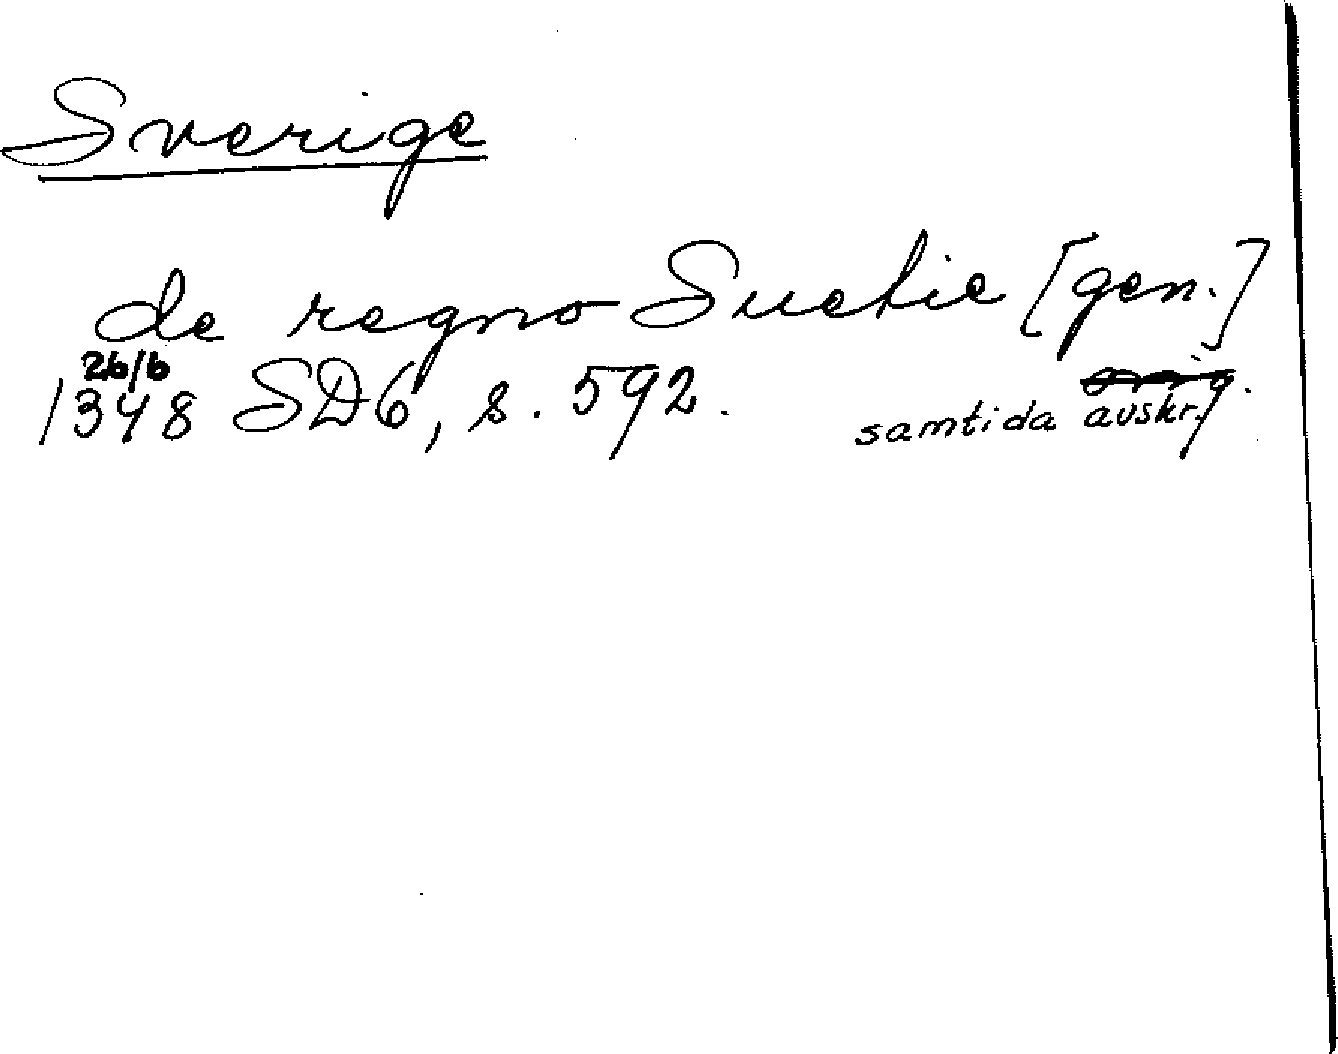 Sverige
de regno Suetie [gen.]
26/6
1348 SD6, s. 592.
samtida avskr.